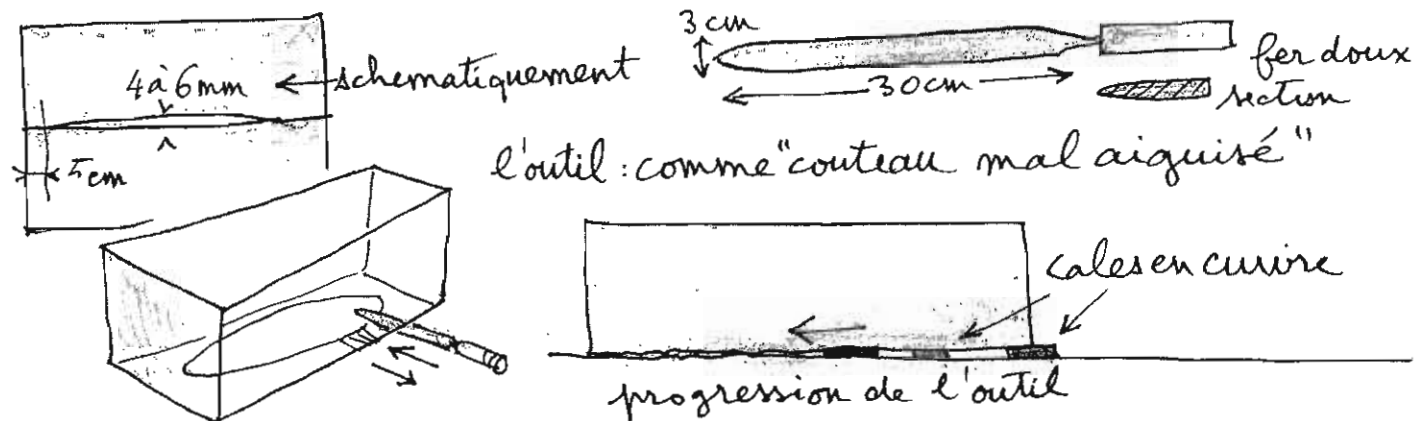 3 cm
4 à 6 mm
schematiquement
30 cm
fer doux
section
5 cm
l'outil : comme "couteau mal aiguisé"
cales en cuivre
progression de l'outil